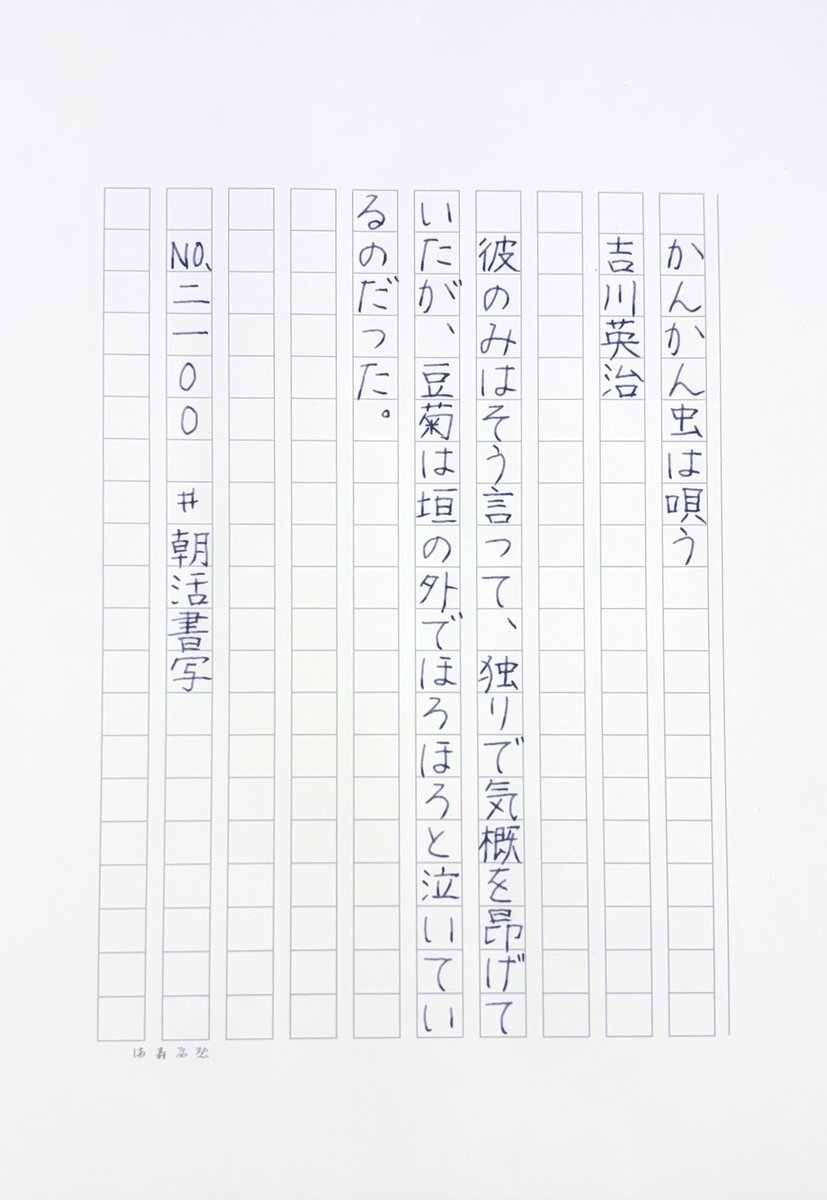 かんかん虫は唄う
吉川英治
彼のみはそう言って、独りで気概を昂げて
いたが、豆菊は垣の外でほろほろと泣いてい
るのだった。
NO、二一〇〇　#朝活書写